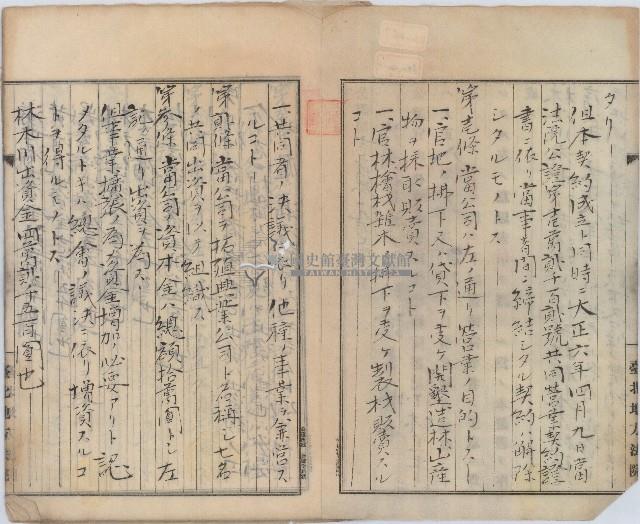 タリ
但本契約成立ト同時ニ大正六年四月九日當
法院公證第壱萬貳千百貳號共同營業契約證
書ニ依リ當事者間ニ締結シタル契約ハ解除
シタルモノトス
第壱條 當公司ハ左ノ通リ營業ノ目的トス
一、官地ノ拂下又ハ貸下ヲ受ケ開墾造林山産
物ヲ採取販賣スルコト
一、官林檜桟雑木拂下ヲ受ケ製材販賣スル
コト
一、共同者ノ決議ニヨリ他種ノ事業ヲ兼営ス
ルコト
第貳條 當公司ヲ拓殖興業公司ト名稱シ七名
ノ共同出資ヲ以テ組織ス
第参條 當公司資本金ハ總額拾萬圓トシ左
記ノ通リ出資ヲ為ス
但事業擴張ノ為メ資金増加ノ必要アリト認
メタルトキハ總會ノ議決ニ依リ増資スルコ
トヲ得ルモノトス
林木川出資金四萬貳千五百圓也
國史館臺灣文獻館
TAIWAN HISTORICA
臺北地方法院